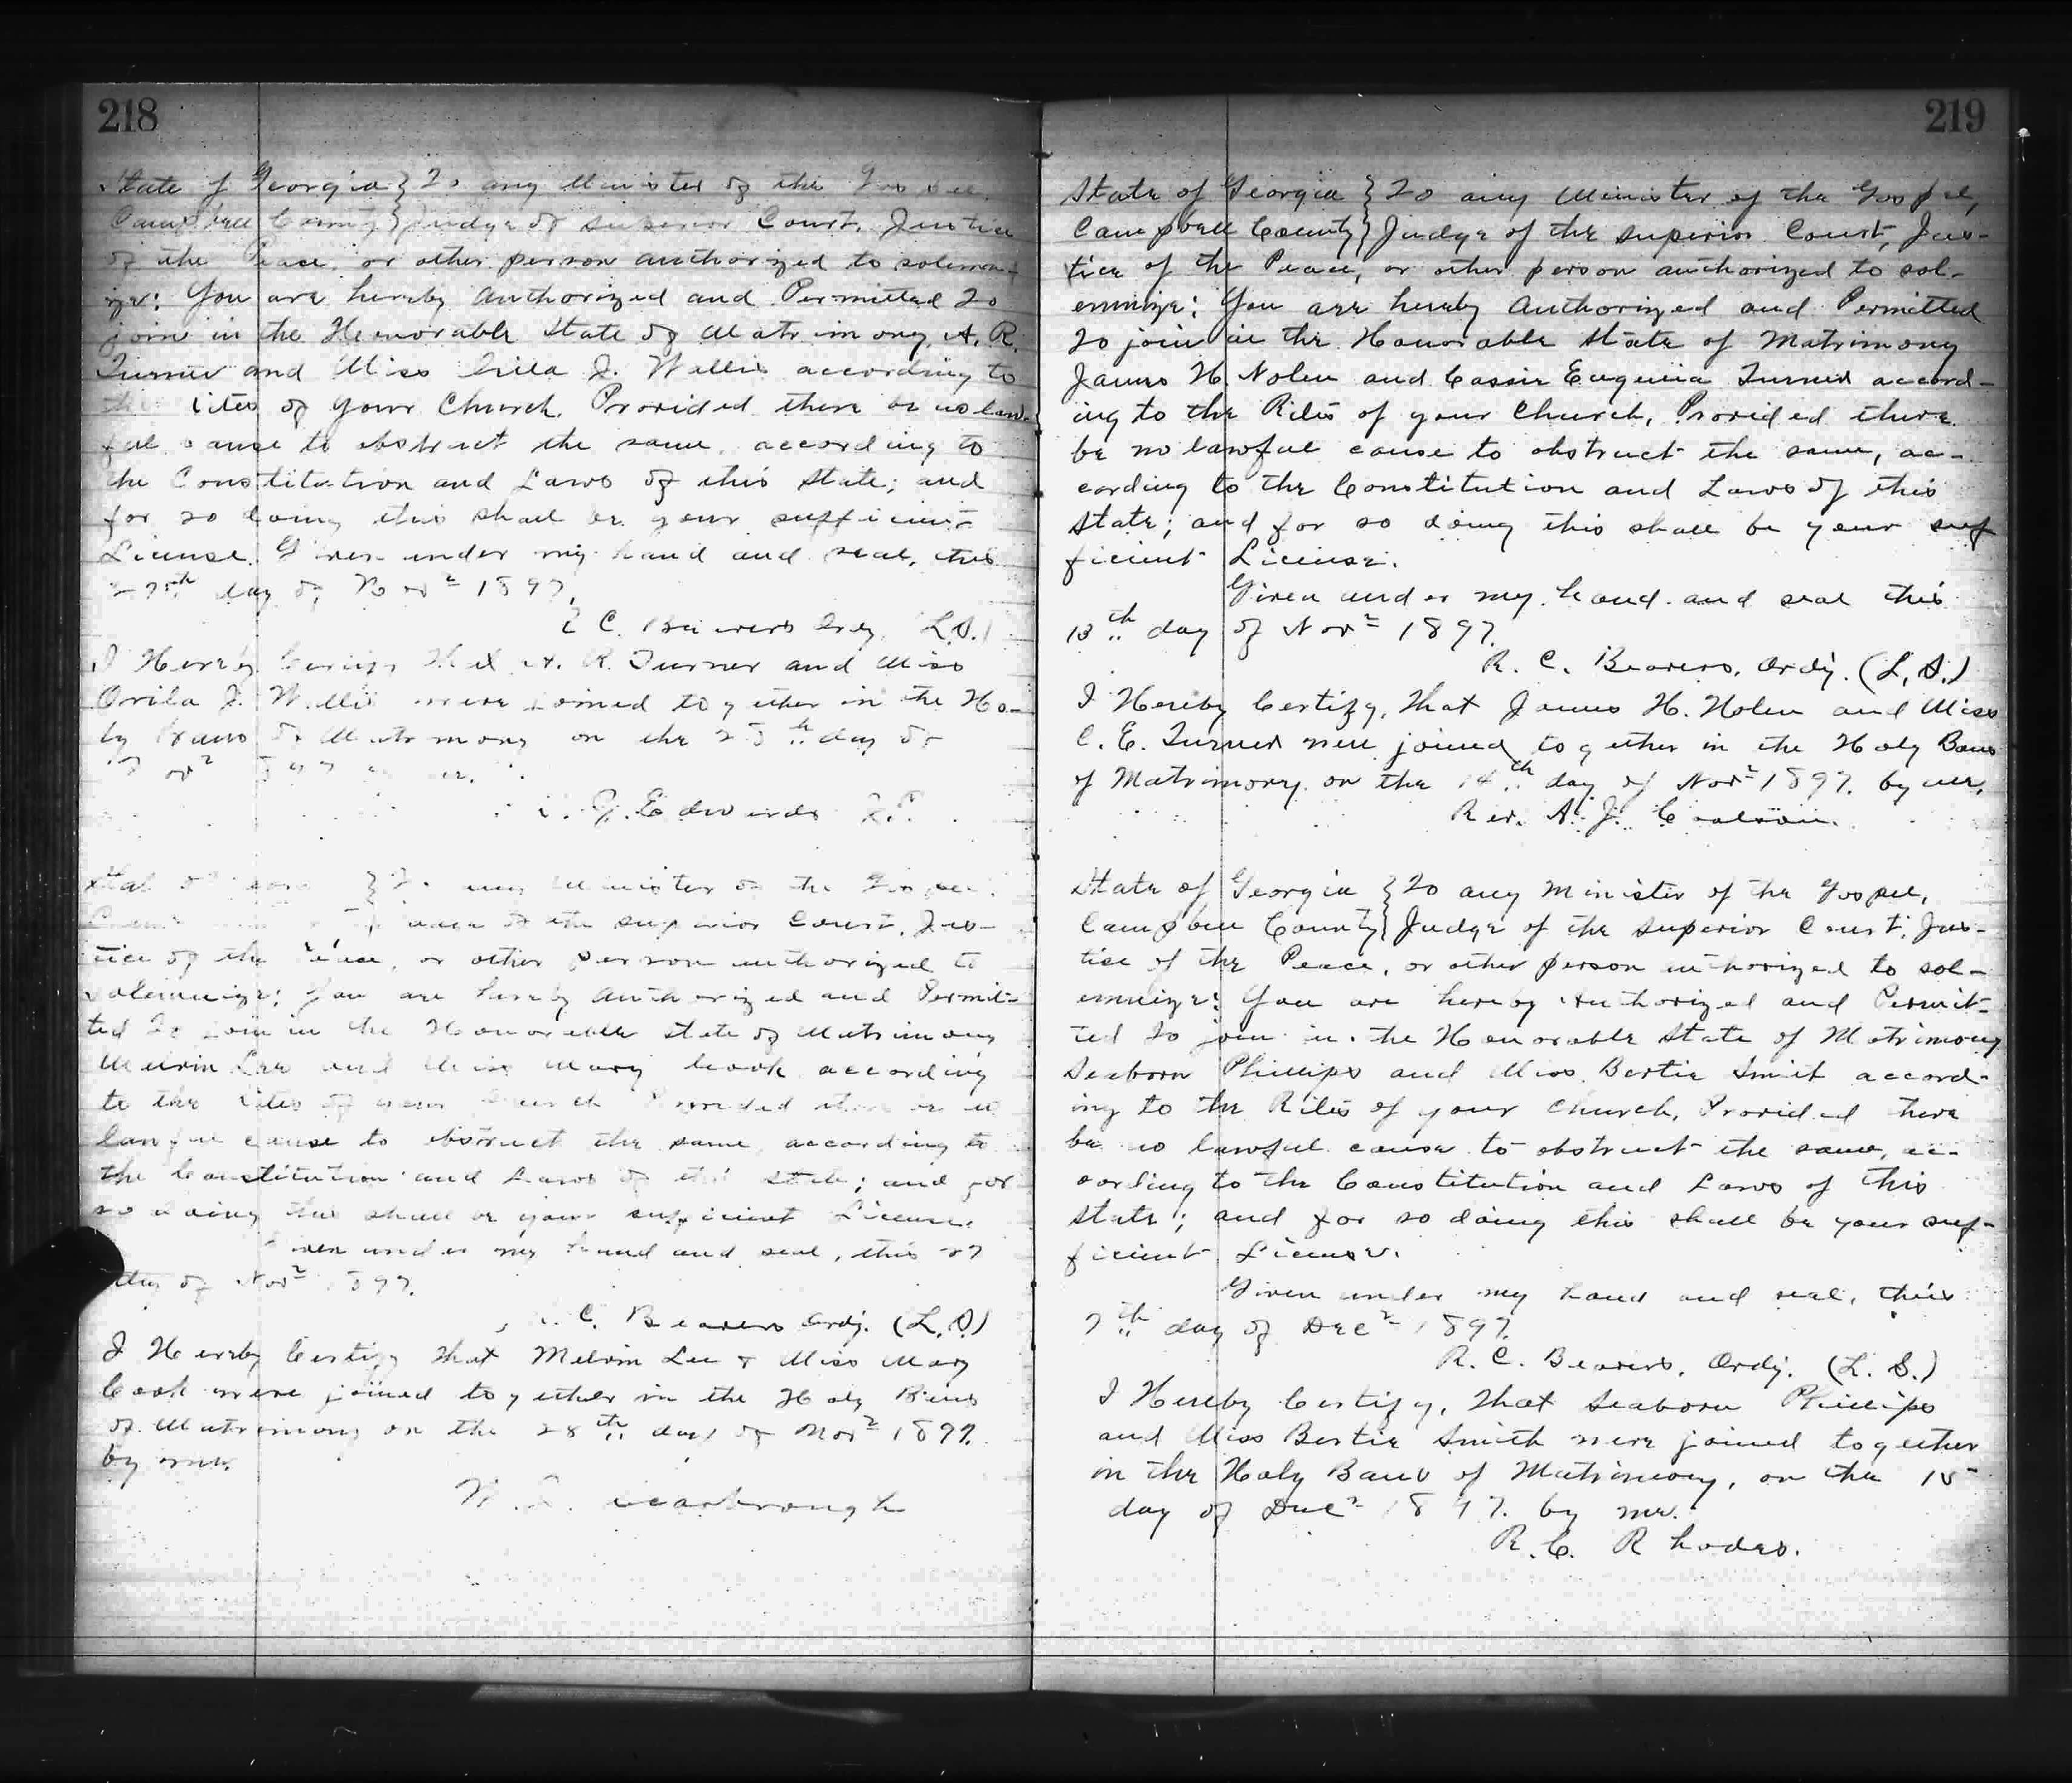 218
State of Georgia } To any Minister of the Gospel,
Campbell County } Judge of Superior Court, Justice
of the Peace, or other person authorized to solemn-
ize: You are hereby Authorized and Permitted To
join in the Honorable State of Matrimony, A. R.
Turner and Miss J. Willis according to
the rites of your Church. Provided there be no law-
ful cause to obstruct the same, according to
the Constitution and Laws of this State; and
for so doing this shall be your sufficient
License. Given under my hand and seal, this
day of Nov 1897.
C. Beavers Ordy. (L.S.)
I Hereby Certify that A. R. Turner and Miss
Orila J. Willis were joined together in the Ho-
ly Bans of Matrimony on the day of
G. Edwards
To any Minister of the Gospel,
of the superior Court, Jus-
tice of the Peace, or other person authorized to
solemnize; You are hereby Authorized and Permit-
ted To join in the Honorable state of Matrimony
Melvin Lee and Miss Mary Cook according
to the rites of your Church Provided there be no
lawful cause to obstruct the same, according to
the Constitution and Laws of this State; and for
so doing this shall be your sufficient License.
Given under my hand and seal, this 27
day of Nov 1897.
C. Beavers Ordy. (L.S.)
I Hereby Certify that Melvin Lee & Miss Mary
Cook were joined together in the Holy Bans
of Matrimony on the 28th day of Nov 1897.
by me.
219
State of Georgia } To any Minister of the Gospel,
Campbell County } Judge of the Superior Court, Jus-
tice of the Peace, or other person authorized to sol-
emnize: You are hereby Authorized and Permitted
To join in the Honorable State of Matrimony
James H. Nolen and Cassie Eugenia Turner accord-
ing to the Rites of your Church, Provided there
be no lawful cause to obstruct the same, ac-
cording to the Constitution and Laws of this
State; and for so doing this shall be your suf
ficient License.
Given under my hand and seal this
13th day of Nov 1897.
R. C. Beavers, Ordy. (L.S.)
I Hereby Certify, that James H. Nolen and Miss
C. E. Turner were joined together in the Holy Bans
of Matrimony on the 14th day of Nov 1897. by me,
Rev. A. J.
State of Georgia } To any Minister of the Gospel,
Campbell County } Judge of the Superior Court, Jus-
tice of the Peace, or other person authorized to sol-
emnize: You are hereby Authorized and Permit-
ted To join in the Honorable State of Matrimony
Seaborn Phillips and Miss Bertie Smith accord-
ing to the Rites of your Church, Provided there
be no lawful cause to obstruct the same, ac-
cording to the Constitution and Laws of this
State; and for so doing this shall be your suf-
ficient License.
Given under my hand and seal, this
7th day of Dec 1897.
R. C. Beavers, Ordy. (L.S.)
I Hereby Certify, that Seaborn Phillips
and Miss Bertie Smith were joined together
in the Holy Bans of Matrimony, on the
day of Dec 1897. by me.
R. C. Rhodes.